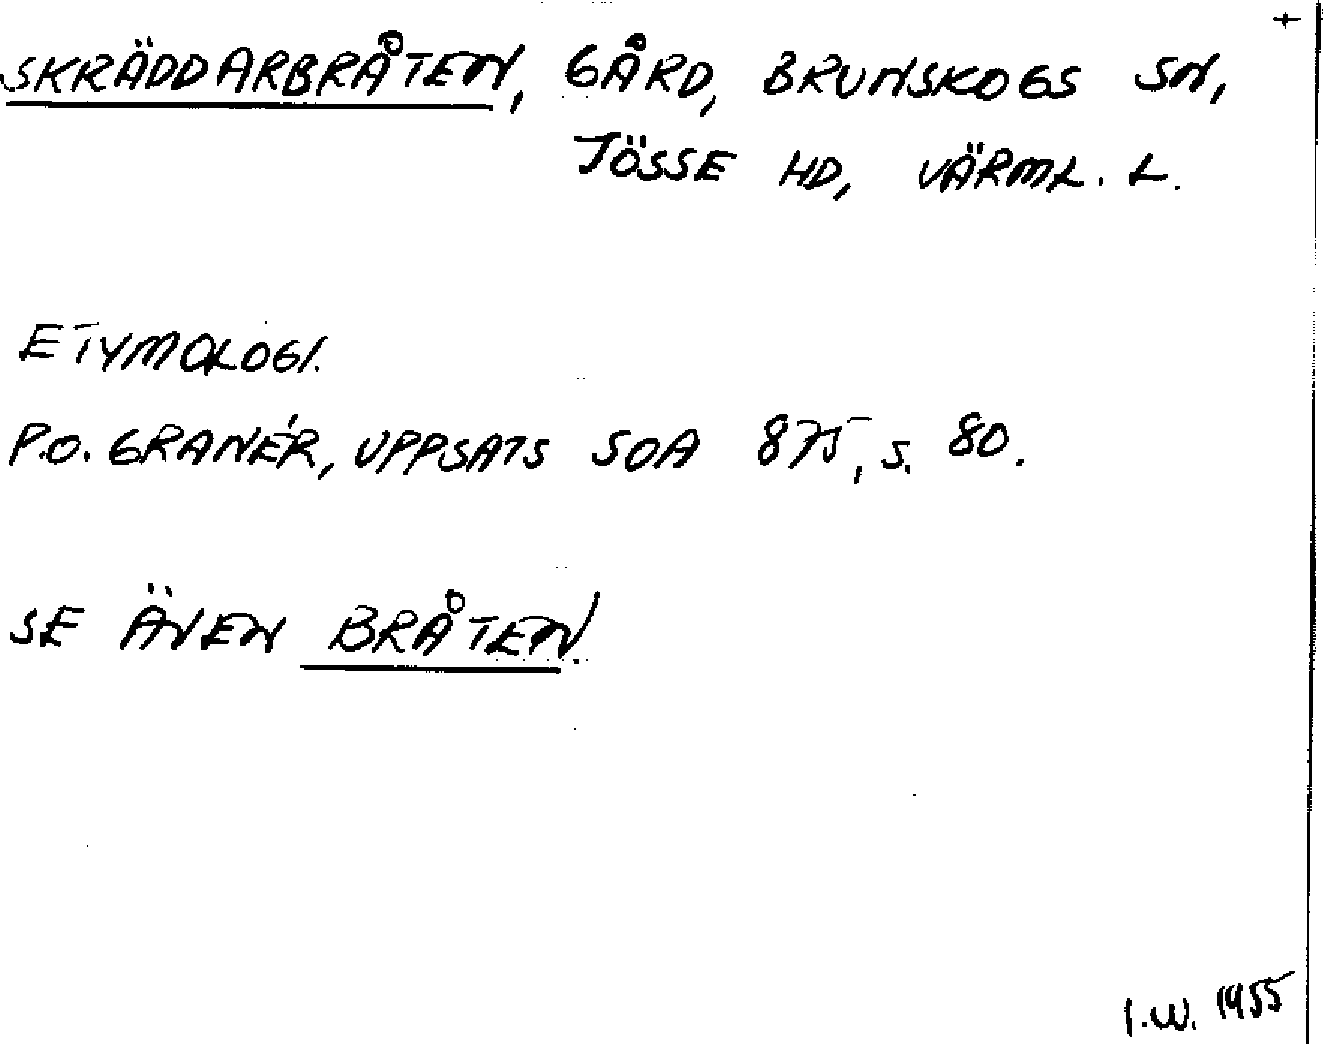 +
SKRÄDDARBRÅTEN, GÅRD, BRUNSKOGS SN,
JÖSSE HD, VÄRML. L.
ETYMOLOGI.
P.O. GRANÉR, UPPSATS SOA 875, S. 80.
SE ÄVEN BRÅTEN.
I.W. 1955